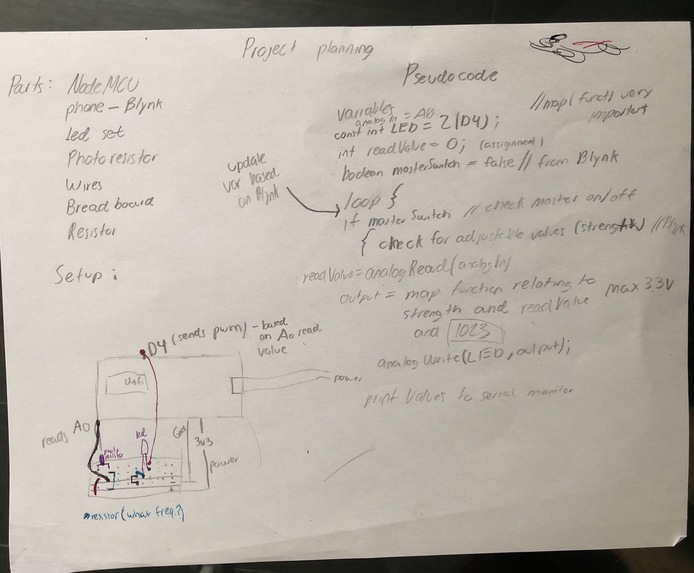 Project planning
Parts: NodeMCU
phone - Blynk
led set
Photoresistor
Wires
Bread board
Resistor
Setup:
Pseudocode
//map(funct) very
important
variables
analogIn = A0
const int LED = 2(D4);
int readValue = 0; (assignment)
boolean masterSwitch = false // from Blynk
update
var based
on Blynk
loop {
if masterSwitch // check master on/off
{ check for adjustable values (strength) // Blynk
readValue = analogRead(analogIn)
output = map function relating to
strength and readValue
and 1023
max 3.3V
analogWrite(LED, output);
print values to serial monitor
D4 (sends pwm) - based
on A0 read
value
power
reads A0
photo
resistor
led
Gnd
3v3
power
*resistor (what freq?)